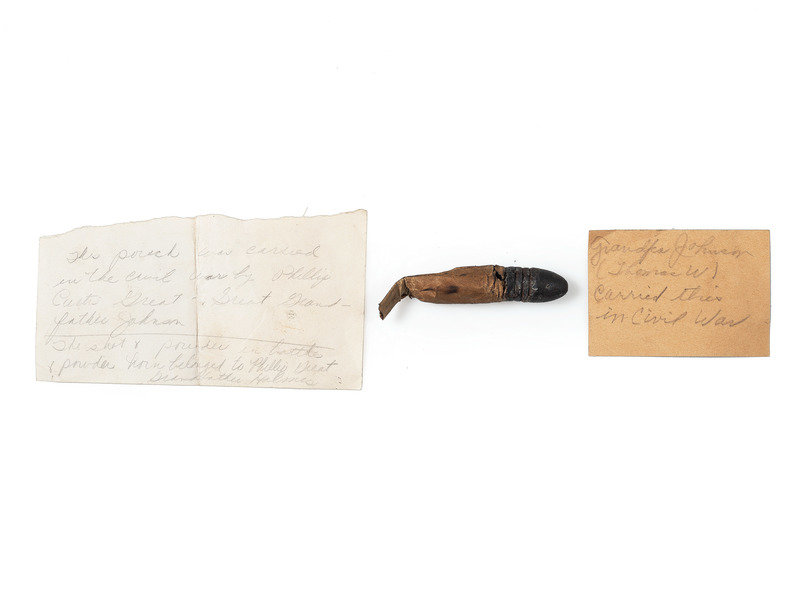 The pouch was carried
in the civil war by Phillip
Great Great Grand-
father Johnson
The shot & powder in bottle
& powder horn belonged to Phillip Great
Grandfather
Grandpa Johnson
(Thomas W)
Carried this
in Civil War